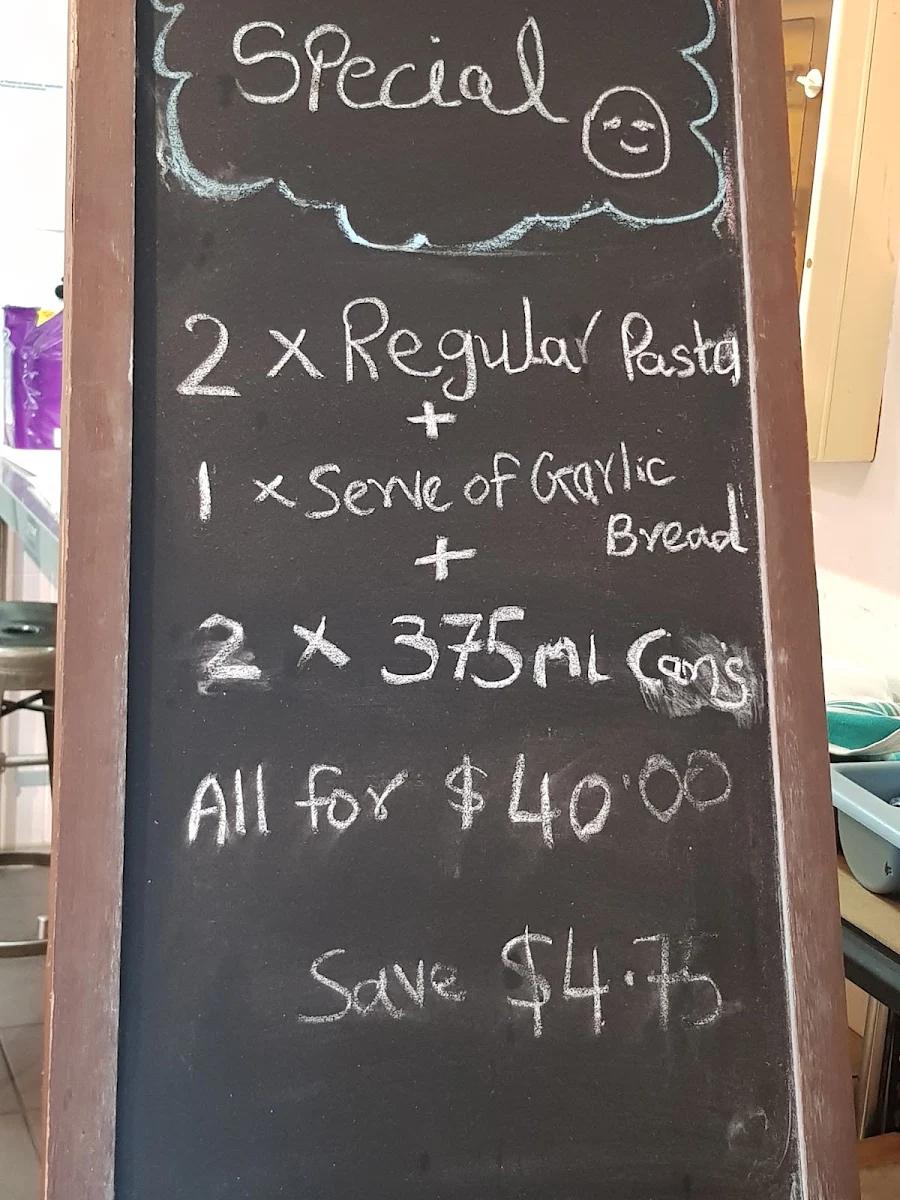 Special
2 x Regular Pasta
+
1 x Serve of Garlic
Bread
+
2 x 375mL Can's
All for $40.00
Save $4.75